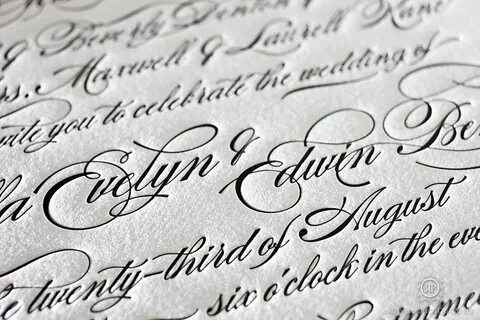 & Beverly Denton &
rs. Maxwell & Laurell Kane
vite you to celebrate the wedding of
la Evelyn & Edwin Be
e twenty-third of August
six o'clock in the eve